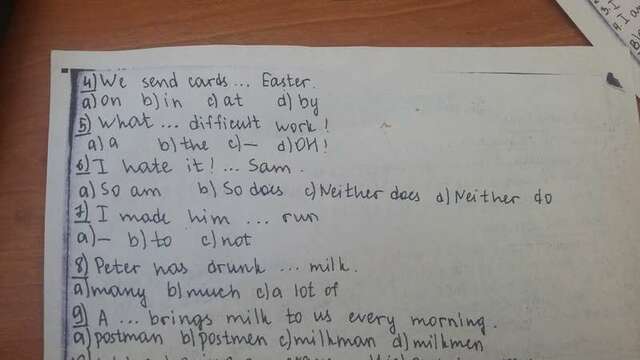 4) We send cards... Easter.
a) on b) in c) at d) by
5) What ... difficult work!
a) a b) the c) – d) OH!
6) I hate it! ... Sam.
a) So am b) So does c) Neither does d) Neither do
7) I made him ... run
a) – b) to c) not
8) Peter has drunk ... milk.
a) many b) much c) a lot of
9) A ... brings milk to us every morning.
a) postman b) postmen c) milkman d) milkmen